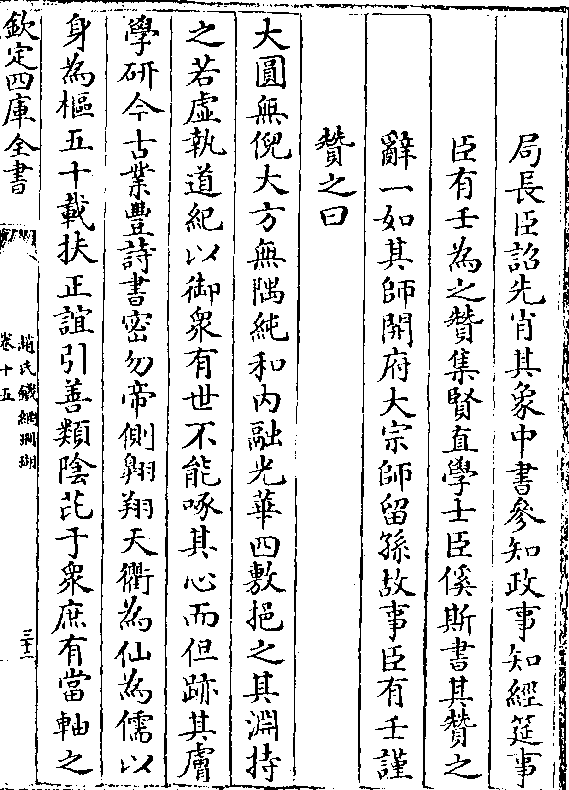 局長臣詔先肖其象中書參知政事知經筵事
臣有壬為之贊集賢直學士臣傒斯書其贊之
辭一如其師開府大宗師留孫故事臣有壬謹
贊之曰
大圓無倪大方無隅純和內融光華四敷挹之其淵持
之若虛執道紀以御衆有世不能啄其心而但跡其膚
學研今古業豐詩書密勿帝側翱翔天衢為仙為儒以
身為樞五十載扶正誼引善類陰芘于衆庶有當軸之
欽定四庫全書
趙氏鐵網珊瑚
卷十五
三十二